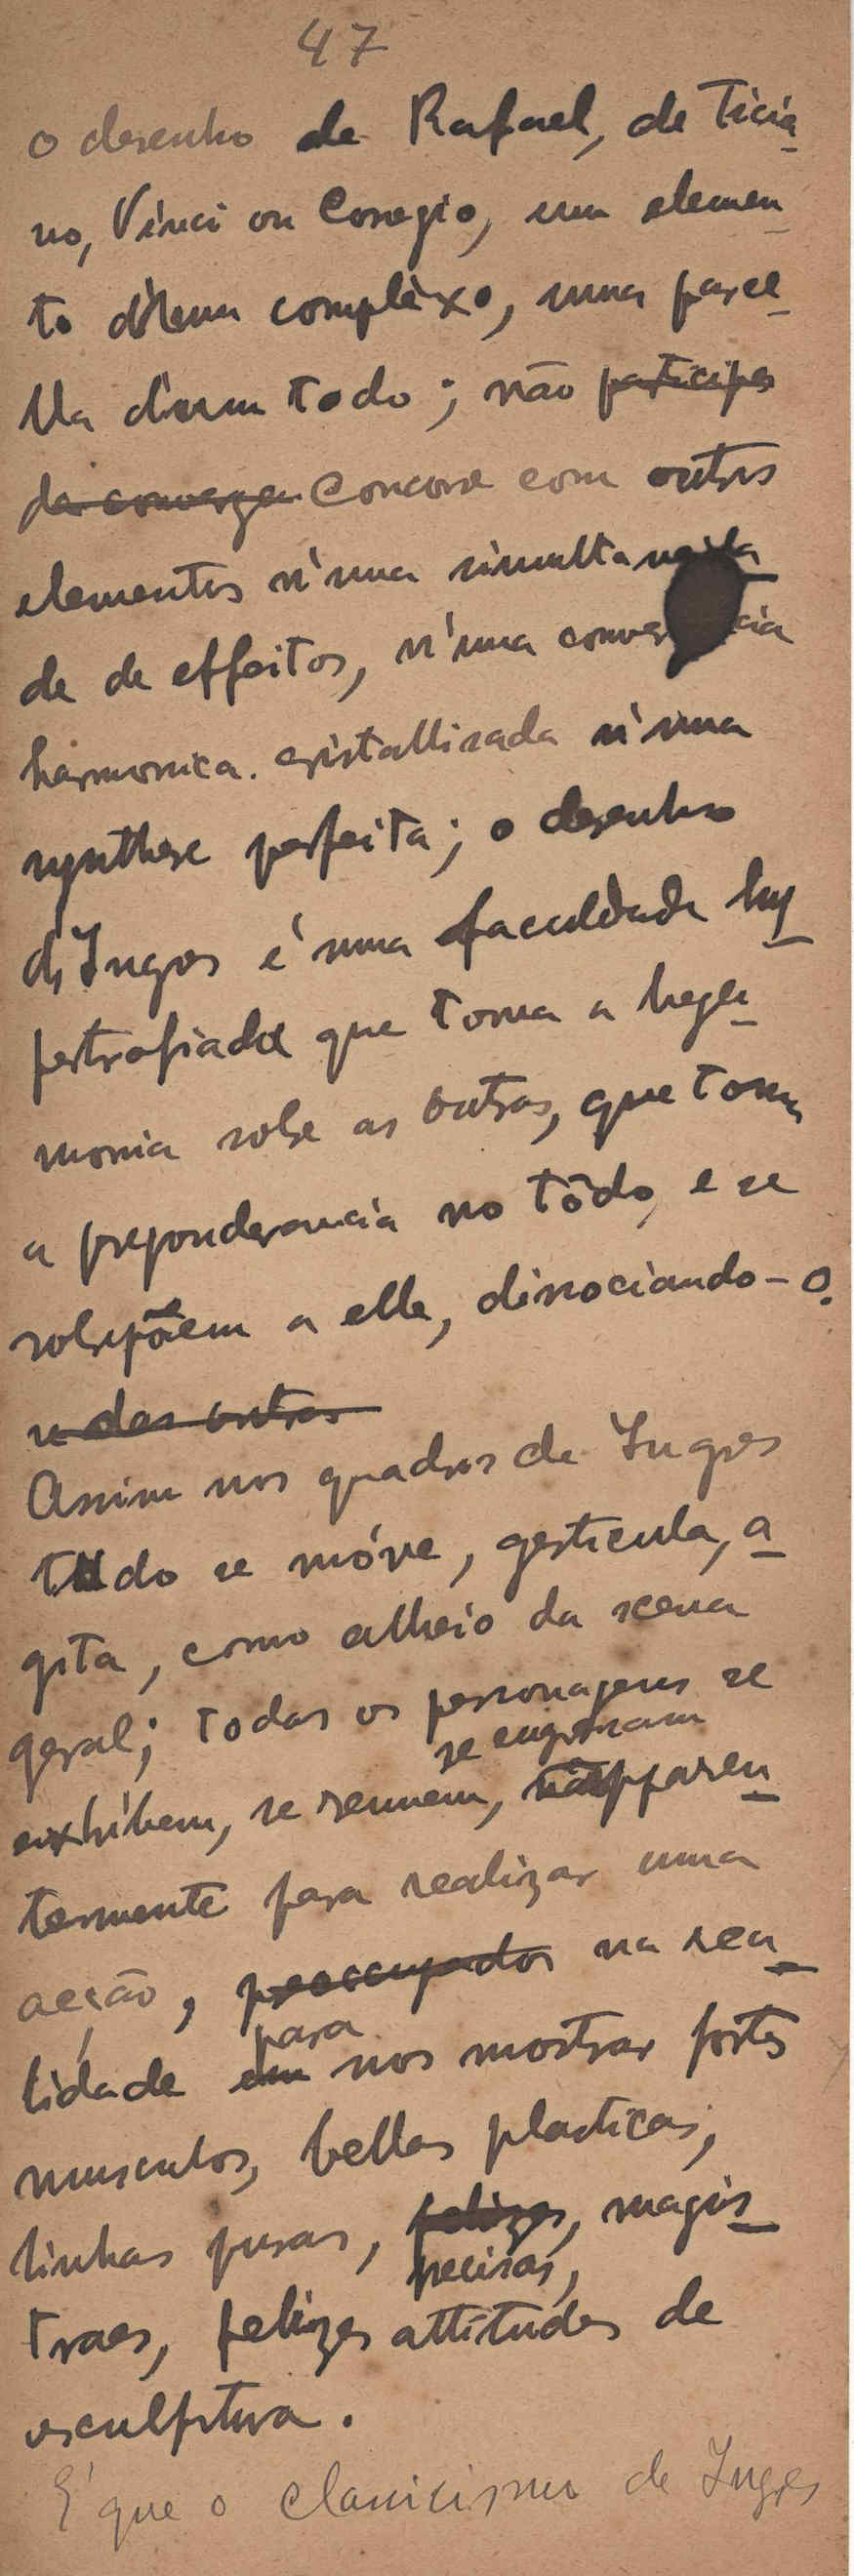 47
o desenho de Rafael, de Ticia-
no, Vinci ou Coregio, um elemen-
to d'um complexo, uma parce-
lla d'um todo; não participa
da converge Concorre com outros
elementos n'uma simultaneida-
de de effeitos, n'uma conver cia
harmonica. cristallisada n'uma
synthese perfeita; o desenho
d'Ingres é uma faculdade hy-
pertrofiada que toma a hege-
monia sobre as outras, que toma
a preponderancia no tôdo, e se
sobrepõem a elle, dissociando-o.
se das outras
Assim nos quadros de Ingres
tudo se móve, gesticula, a-
gita, como alheio da scena
geral; todas os personagens se
se engrenam
exhíbem, se reunem, apparen-
temente para realizar uma
acção, preoccupados na rea-
para
lidade em nos mostrar fortes
musculos, bellas plasticas,
linhas puras, felizes, magis-
precisas,
traes, felizes attitudes de
esculptura.
E' que o classicismo de Ingres